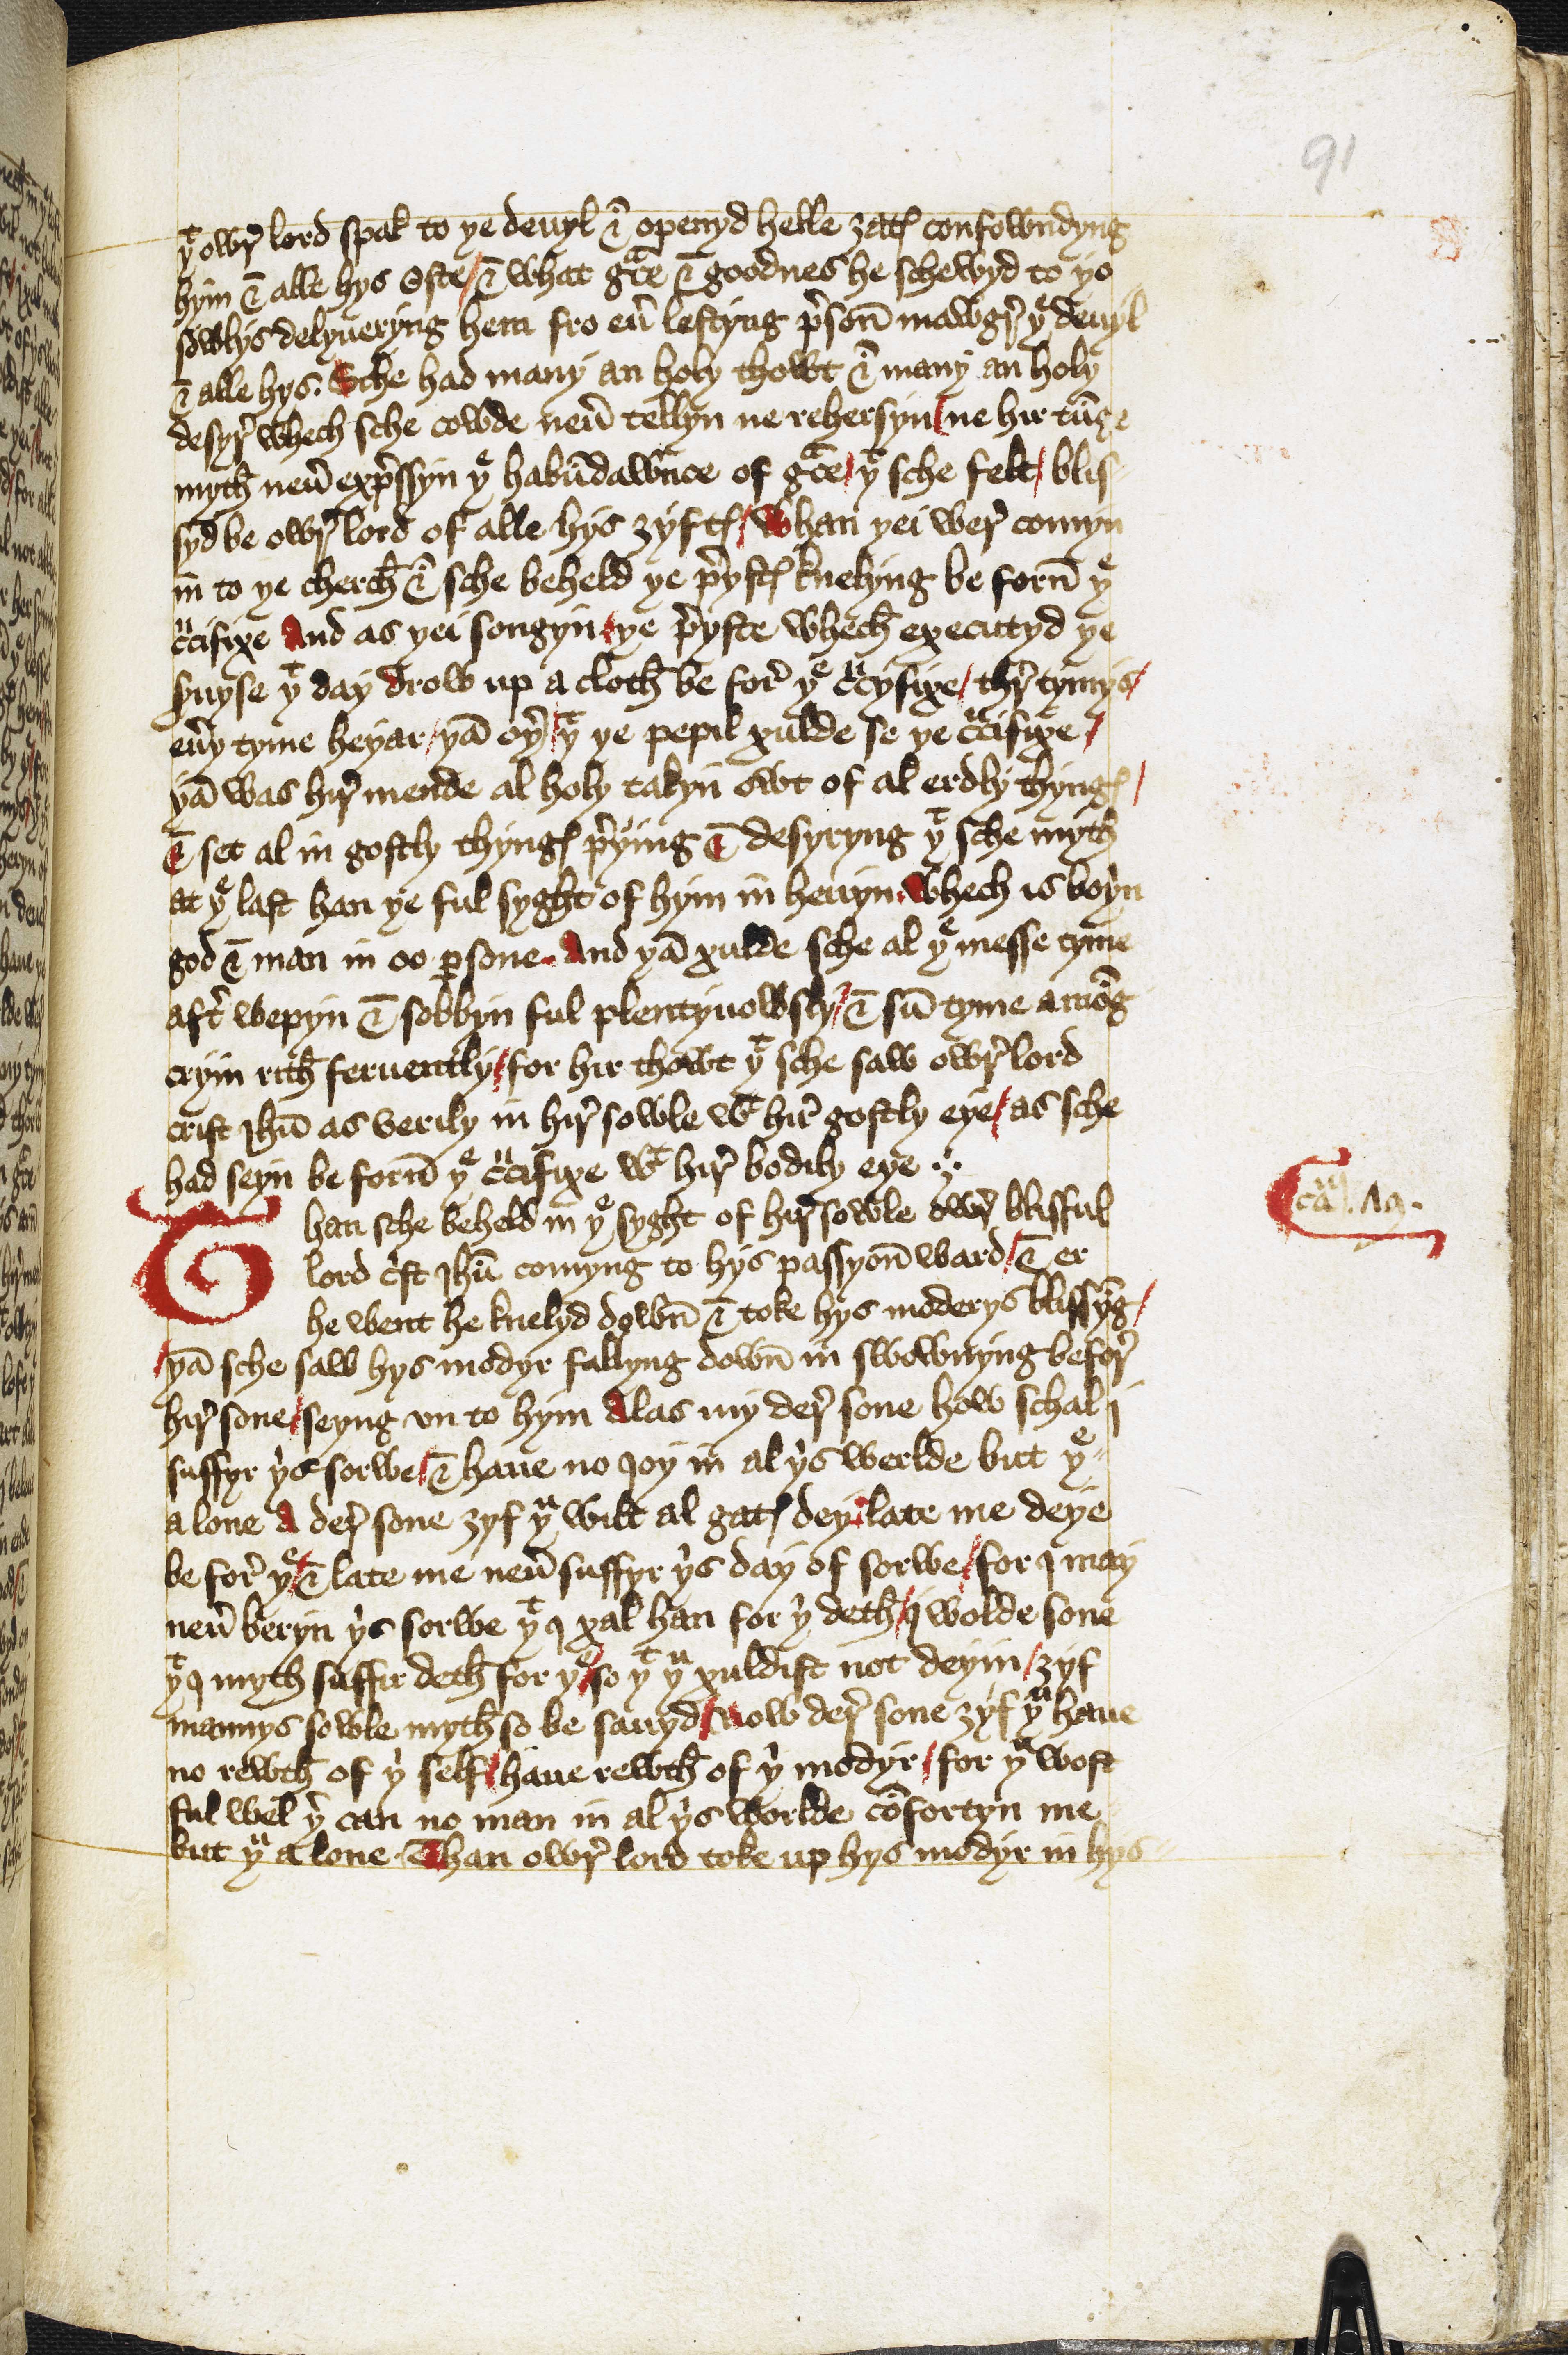 91
yͭ owr̛ lord spak to ye deuyl & openyd helle ȝatꝭ confowndyng
hym & alle hys Oste / & what gᵃce & goodnes he schewyd to yo
sowlys delyueryng hem fro eu̅ lestyng p̛son̅ mawgr̛ yͤ deuyl
& alle hys. Sche had many an holy thowt & many an holy
desyr̛ whech sche cowde neu̅ tellyn ne rehersyn / ne hir tu̅ge
myth neu̅ exp̛ssyn yͤ habu̅dawnce of gᵃce / yͭ sche felt / blis-
syd be owr̛ lord of alle hys ȝyftꝭ / Whan yei wer̛ comyn
in to ye cherch̅ & sche beheld ye p̛ystꝭ knelyng be forn̅ yͤ
cᵘcifixe And as yei songyn / ye p̛yste whech̅ executyd ye
s̛uyse yͭ day drow up a cloth̅ be for̛ yͤ cᵘcyfixe / thr̛ tymys /
eu̅y tyme heyar / ya̅ oy̛ / yͭ ye pepil xulde se ye cᵘcifixe /
ya̅ was hir̛ mende al holy takyn owt of al erdly thyngꝭ /
& set al in gostly thyngꝭ p̛yi̅g & desyryng yͭ sche myth
at yͤ last han ye ful syght of hym in heuyn. Whech is boyn
god & man in oo ꝑsone. And ya̅ xulde sche al yͤ messe tyme
aft̛ wepyn & sobbyn ful plentyuowsly / & su̅ tyme amo̅g
cryin rith̅ feruently / for hir thowt yͭ sche saw owr̛ lord
crist ihu̅ as verily in hir̛ sowle wͭ hir̛ gostly eye / as sche
had seyn be forn̅ yͤ cᵘcifixe wͭ hir̛ bodily eye
caᵐ. 79.
Than sche beheld in yͤ syght of hir̛ sowle owr̛ blisful
lord c̛st ihu̅ comyng to hys passyon̅ ward / & er
he went he knelyd down̅ & toke hys moderys blissy̅g /
/ ya̅ sche saw hys modyr fallyng down̅ in swownyng befor̛
hir̛ sone / seyng vn to hym Alas my der̛ sone how schal j
suffyr y̛s sorwe / & haue no joy in al y̛s werlde but yͤ-
a lone A der̛ sone ȝyf yᵘ wilt al gatꝭ dey / late me deye
be for̛ yͤ / & late me neu̅ suffyr y̛s day of sorwe / for j may
neu̅ beryn y̛s sorwe yͭ j xal han for y̛ deth̅ / j wolde sone
yͭ j myth suffir deth̅ for yͤ / so yͭ yᵘ xuldist not deyin / ȝyf
mannys sowle myth̅ so be sauyd / now der̛ sone ȝyf yᵘ haue
no rewth̅ of y̛ self / haue rewth̅ of y̛ modyr / for yᵘ wost
ful wel y̛ can no man in al y̛s worlde co̅fortyn me
but yᵘ a lone. Than owr̛ lord toke up hys modyr in hys